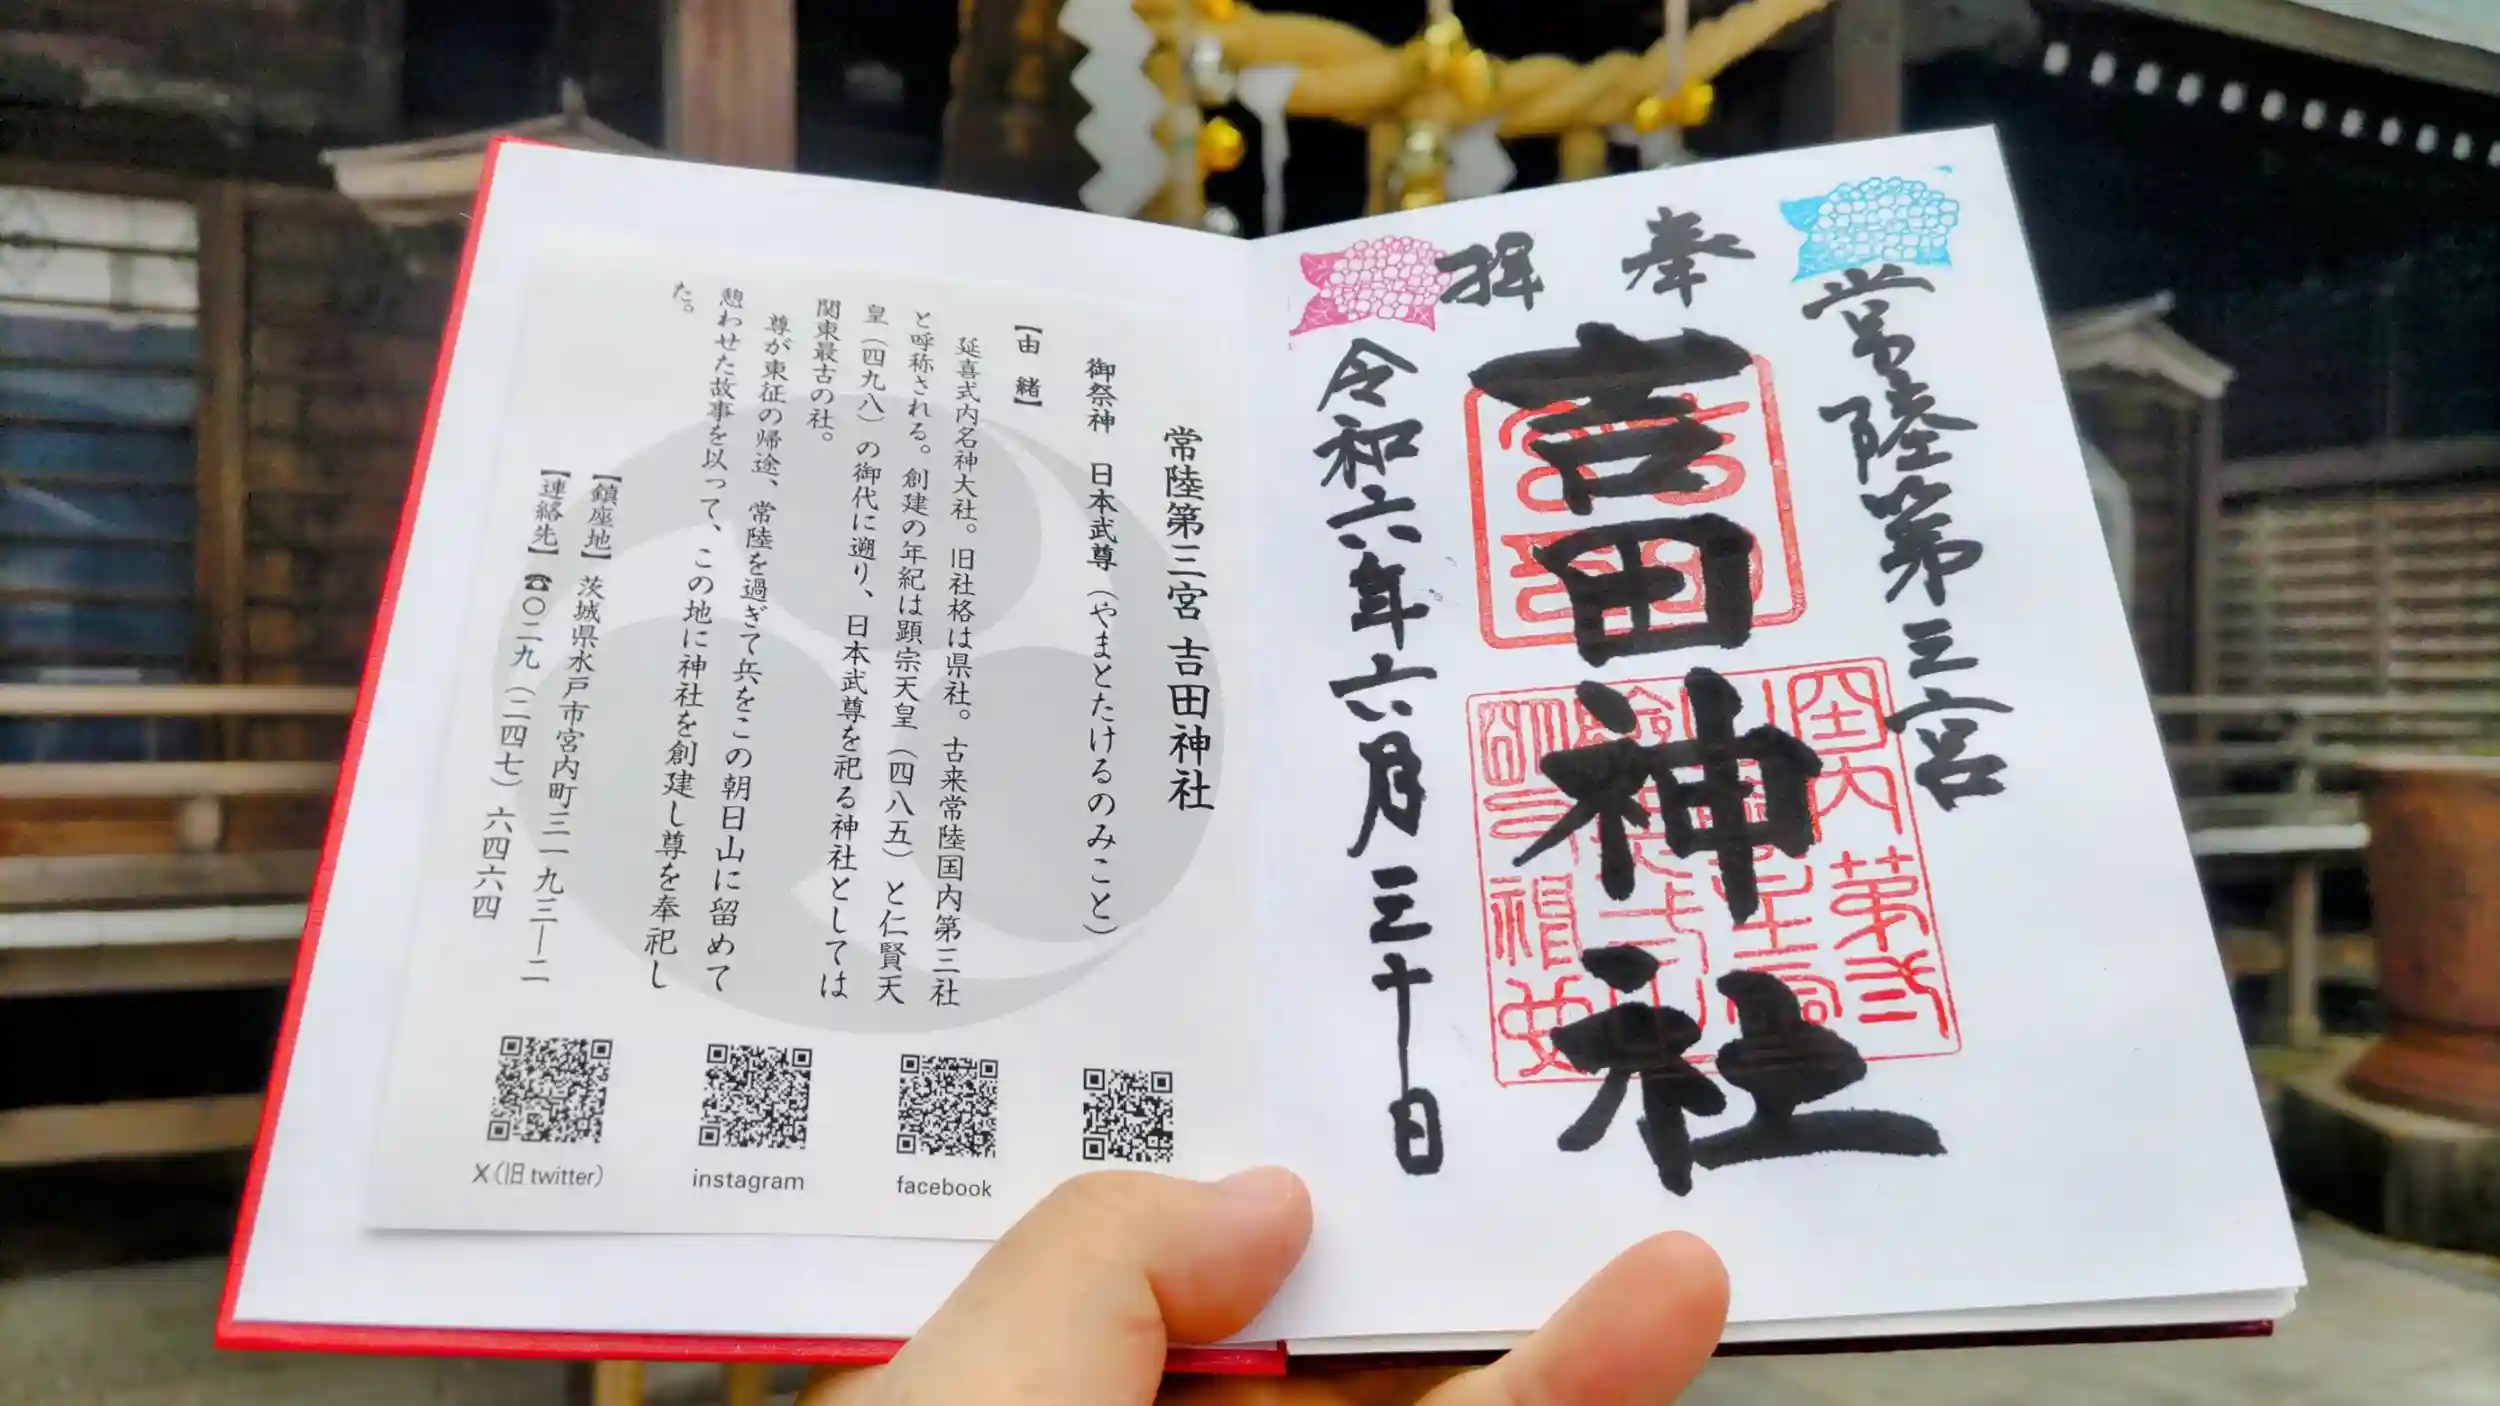 奉拝
常陸第三宮
吉田神社
令和六年六月三十日
常陸第三宮 吉田神社
御祭神 日本武尊(やまとたけるのみこと)
【由緒】
延喜式内名神大社。旧社格は県社。古来常陸国内第三社
と呼称される。創建の年紀は顕宗天皇(四八五)と仁賢天
皇(四九八)の御代に遡り、日本武尊を祀る神社としては
関東最古の社。
尊が東征の帰途、常陸を過ぎて兵をこの朝日山に留めて
憩わせた故事を以って、この地に神社を創建し尊を奉祀し
た。
【鎮座地】茨城県水戸市宮内町三一九三―二
【連絡先】☎〇二九(二四七)六四六四
X(旧twitter)
instagram
facebook